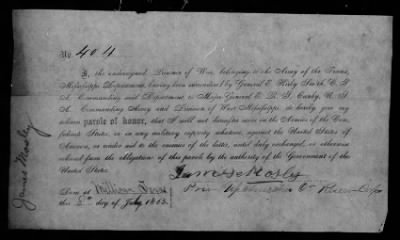 No. 404
I, the undersigned, Prisoner of War, belonging to the Army of the Trans-
Mississippi Department, having been surrendered by General E. Kirby Smith, C. S.
A., Commanding said Department, to Major General E. R. S. Canby, U. S.
A., Commanding Army and Division of West Mississippi, do hereby give my
solemn parole of honor, that I will not hereafter serve in the Armies of the Con-
federate States, or in any military capacity whatever, against the United States of
America, or render aid to the enemies of the latter, until duly exchanged, or otherwise
released from the obligation of this parole by the authority of the Government of the
United States.
James Mosby
Done at Millican Texas
this 2 day of July 1865.
James Mosby